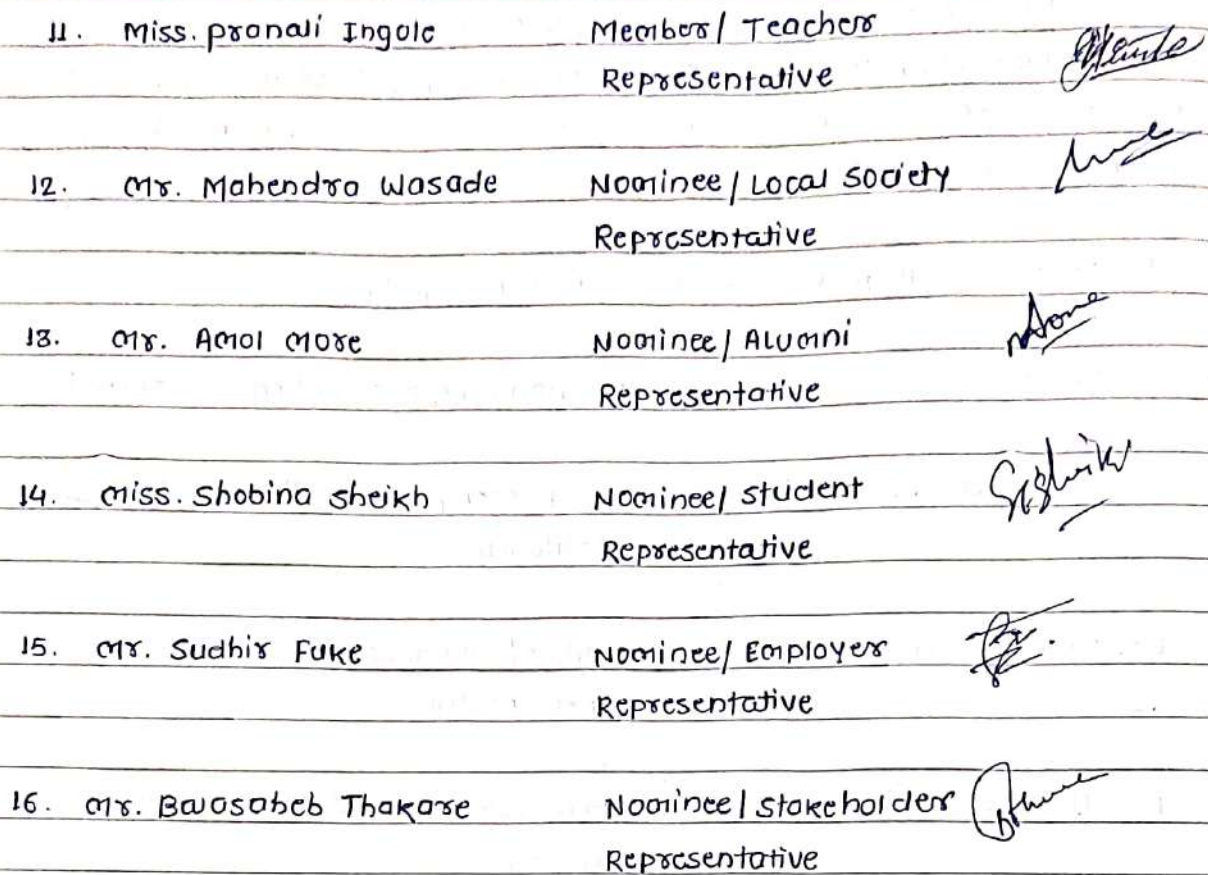 11. Miss. Pranali Ingole Member/ Teacher
Representative
12. Mr. Mahendra Wasade Nominee/ Local Society
Representative
13. Mr. Amol More Nominee/ Alumni
Representative
14. Miss. Shobina Sheikh Nominee/ Student
Representative
15. Mr. Sudhir Fuke Nominee/ Employer
Representative
16. Mr. Thakare Nominee/ Stakeholder
Representative